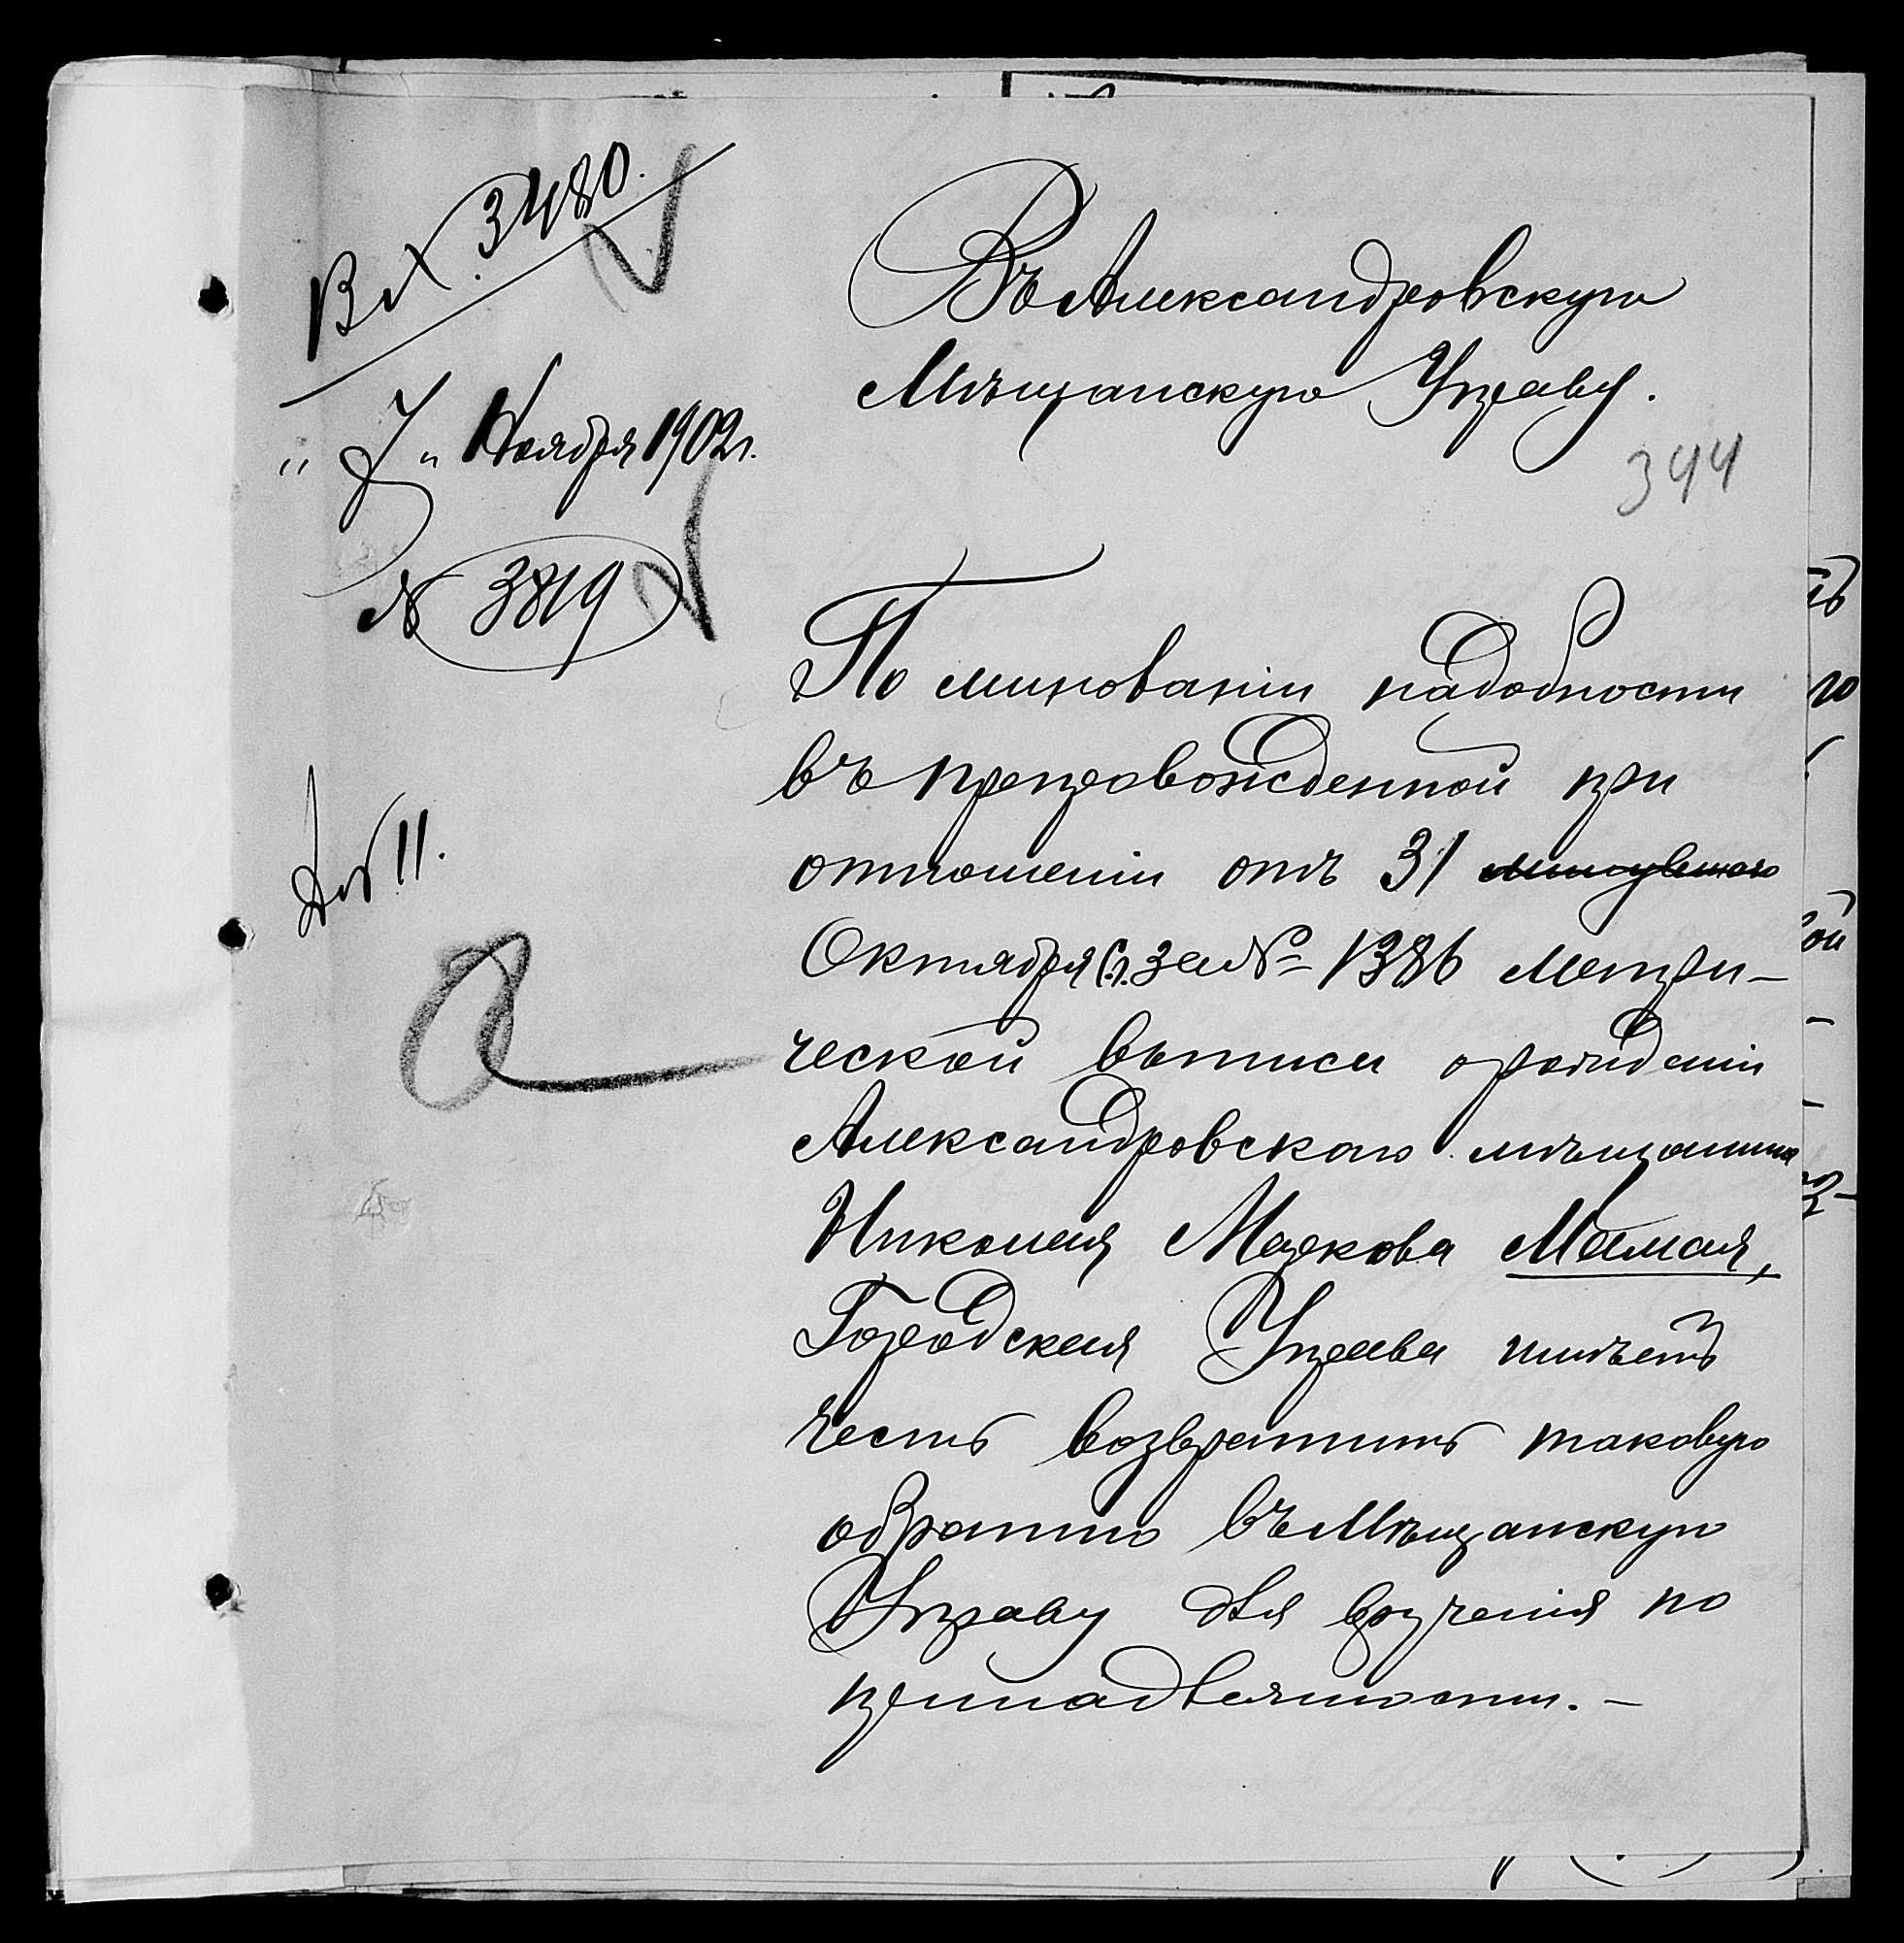 Вх. 3480.
"7" Ноября 1902 г.
№ 3819
11.
Въ Александровскую
Мѣщанскую Управу.
344
По минованіи надобности
въ препровожденной при
отношеніи отъ 31 минувшаго
Октября с.г. за № 1386 метри-
ческой выписи о рожденіи
Александровскаго мѣщанина
Николая Маркова Мамая,
Городская Управа имѣетъ
честь возвратить таковую
обратно въ Мѣщанскую
Управу для врученія по
принадлежности. –